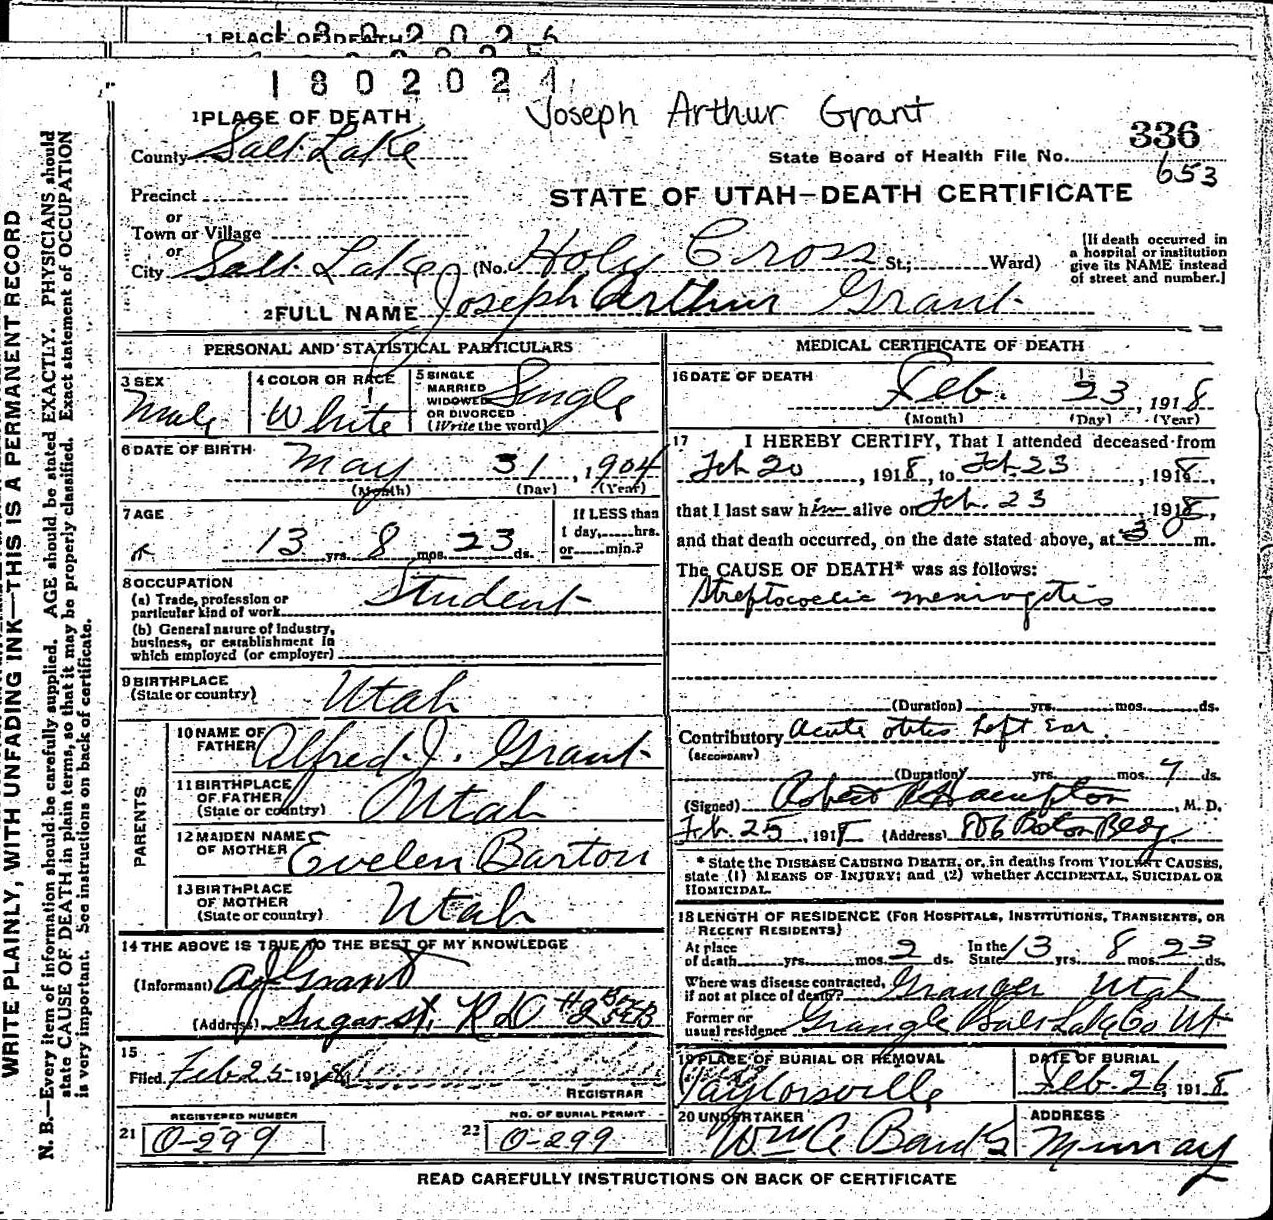 1 PLACE OF DEATH
1802026
1802024
Joseph Arthur Grant
1 PLACE OF DEATH
336
County Salt Lake
State Board of Health File No. 653
Precinct
STATE OF UTAH—DEATH CERTIFICATE
or
Town or Village
or
City Salt Lake (No. Holy Cross St.; Ward)
[If death occurred in a hospital or institution give its NAME instead of street and number.]
2 FULL NAME Joseph Arthur Grant
PERSONAL AND STATISTICAL PARTICULARS
3 SEX
Male
4 COLOR OR RACE
White
5 SINGLE MARRIED WIDOWED OR DIVORCED (Write the word)
Single
6 DATE OF BIRTH
May 31, 1904
(Month) (Day) (Year)
7 AGE
13 yrs. 8 mos. 23 ds.
If LESS than 1 day,......hrs. or......min.?
8 OCCUPATION
(a) Trade, profession or particular kind of work Student
(b) General nature of industry, business, or establishment in which employed (or employer)
9 BIRTHPLACE
(State or country) Utah
PARENTS
10 NAME OF FATHER Alfred J. Grant
11 BIRTHPLACE OF FATHER (State or country) Utah
12 MAIDEN NAME OF MOTHER Evelen Barton
13 BIRTHPLACE OF MOTHER (State or country) Utah
14 THE ABOVE IS TRUE TO THE BEST OF MY KNOWLEDGE
(Informant) A J Grant
(Address) Sugar st. R D #2
15
Filed Feb 25 1918
REGISTRAR
REGISTERED NUMBER
21 0-299
NO. OF BURIAL PERMIT
22 0-299
MEDICAL CERTIFICATE OF DEATH
16 DATE OF DEATH
Feb. 23, 1918
(Month) (Day) (Year)
17 I HEREBY CERTIFY, That I attended deceased from
Feb 20, 1918, to Feb 23, 1918,
that I last saw him alive on Feb. 23 1918,
and that death occurred, on the date stated above, at 30 m.
The CAUSE OF DEATH* was as follows:
Streptococcic meningitis
(Duration) yrs. mos. ds.
Contributory Acute otitis Left Ear.
(SECONDARY)
(Duration) yrs. mos. 7 ds.
(Signed) Robert R Hampton, M. D.
Feb. 25, 1918 (Address) 806 Boston Bldg
* State the DISEASE CAUSING DEATH, or, in deaths from VIOLENT CAUSES, state (1) MEANS OF INJURY; and (2) whether ACCIDENTAL, SUICIDAL OR HOMICIDAL.
18 LENGTH OF RESIDENCE (FOR HOSPITALS, INSTITUTIONS, TRANSIENTS, OR RECENT RESIDENTS)
At place of death yrs. mos. 2 ds. In the State 13 yrs. 8 mos. 23 ds.
Where was disease contracted, if not at place of death? Granger Utah
Former or usual residence Salt Lake Co Ut
19 PLACE OF BURIAL OR REMOVAL
Taylorsville
DATE OF BURIAL
Feb. 26, 1918
20 UNDERTAKER
Banks
ADDRESS
Murray
READ CAREFULLY INSTRUCTIONS ON BACK OF CERTIFICATE
WRITE PLAINLY, WITH UNFADING INK—THIS IS A PERMANENT RECORD
N. B.—Every item of information should be carefully supplied. AGE should be stated EXACTLY. PHYSICIANS should
state CAUSE OF DEATH in plain terms, so that it may be properly classified. Exact statement of OCCUPATION
is very important. See instructions on back of certificate.